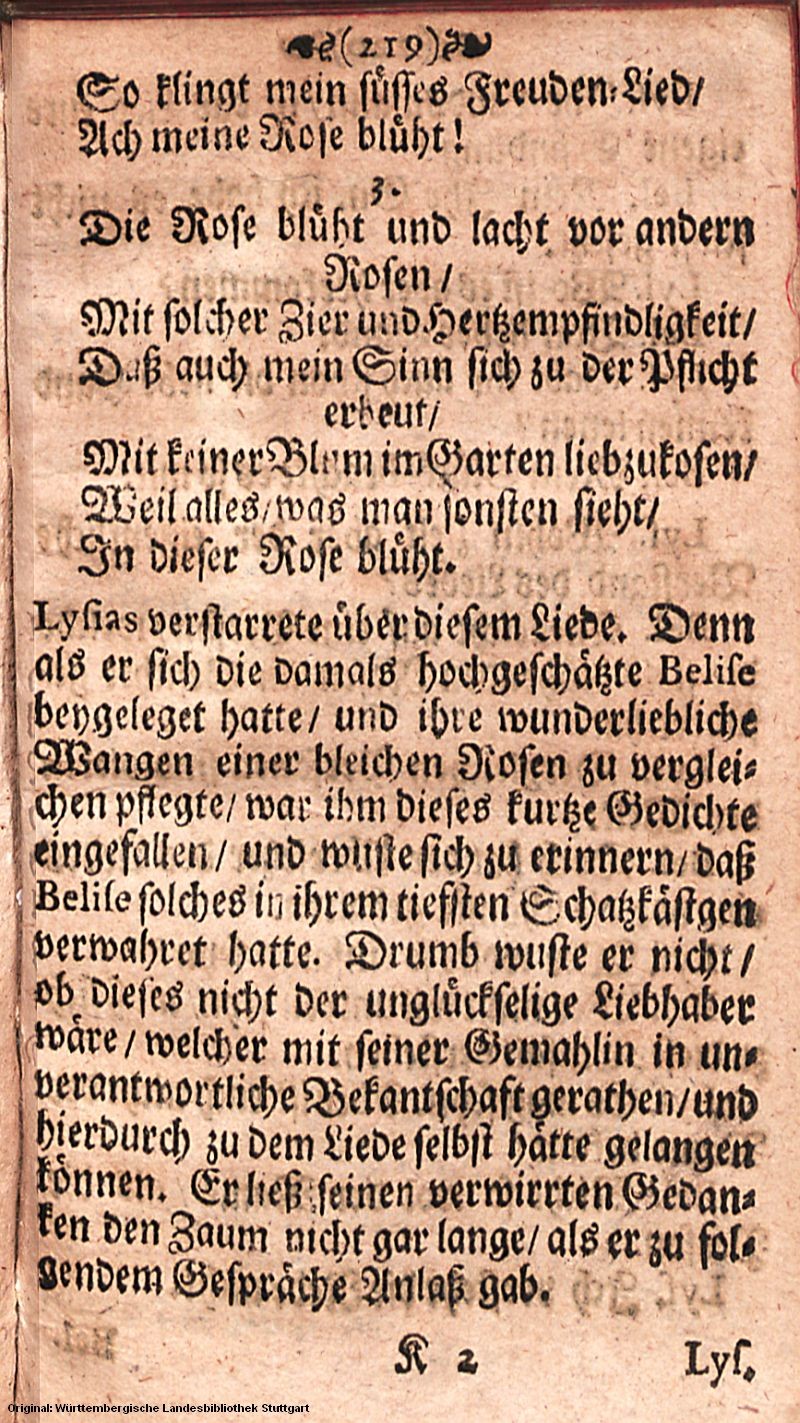 (219)
So klingt mein süsses Freuden-Lied/
Ach meine Rose blüht!
3.
Die Rose blüht und lacht vor andern
Rosen/
Mit solcher Zier und Hertzempfindligkeit/
Daß auch mein Sinn sich zu der Pflicht
erbeut/
Mit keiner Blum im Garten liebzukosen/
Weil alles/was man sonsten sieht/
In dieser Rose blüht.
Lysias verstarrete über diesem Liede. Denn
als er sich die damals hochgeschätzte Belise
beygeleget hatte/ und ihre wunderliebliche
Wangen einer bleichen Rosen zu verglei-
chen pflegte/ war ihm dieses kurtze Gedichte
eingefallen/ und wuste sich zu erinnern/ daß
Belise solches in ihrem tieffsten Schatzkästgen
verwahret hatte. Drumb wuste er nicht/
ob dieses nicht der unglückselige Liebhaber
wäre/ welcher mit seiner Gemahlin in un-
verantwortliche Bekantschaft gerathen/und
hierdurch zu dem Liede selbst hätte gelangen
können. Er ließ seinen verwirrten Gedan-
ken den Zaum nicht gar lange/ als er zu fol-
gendem Gespräche Anlaß gab.
K 2 Lys.
Original: Württembergische Landesbibliothek Stuttgart